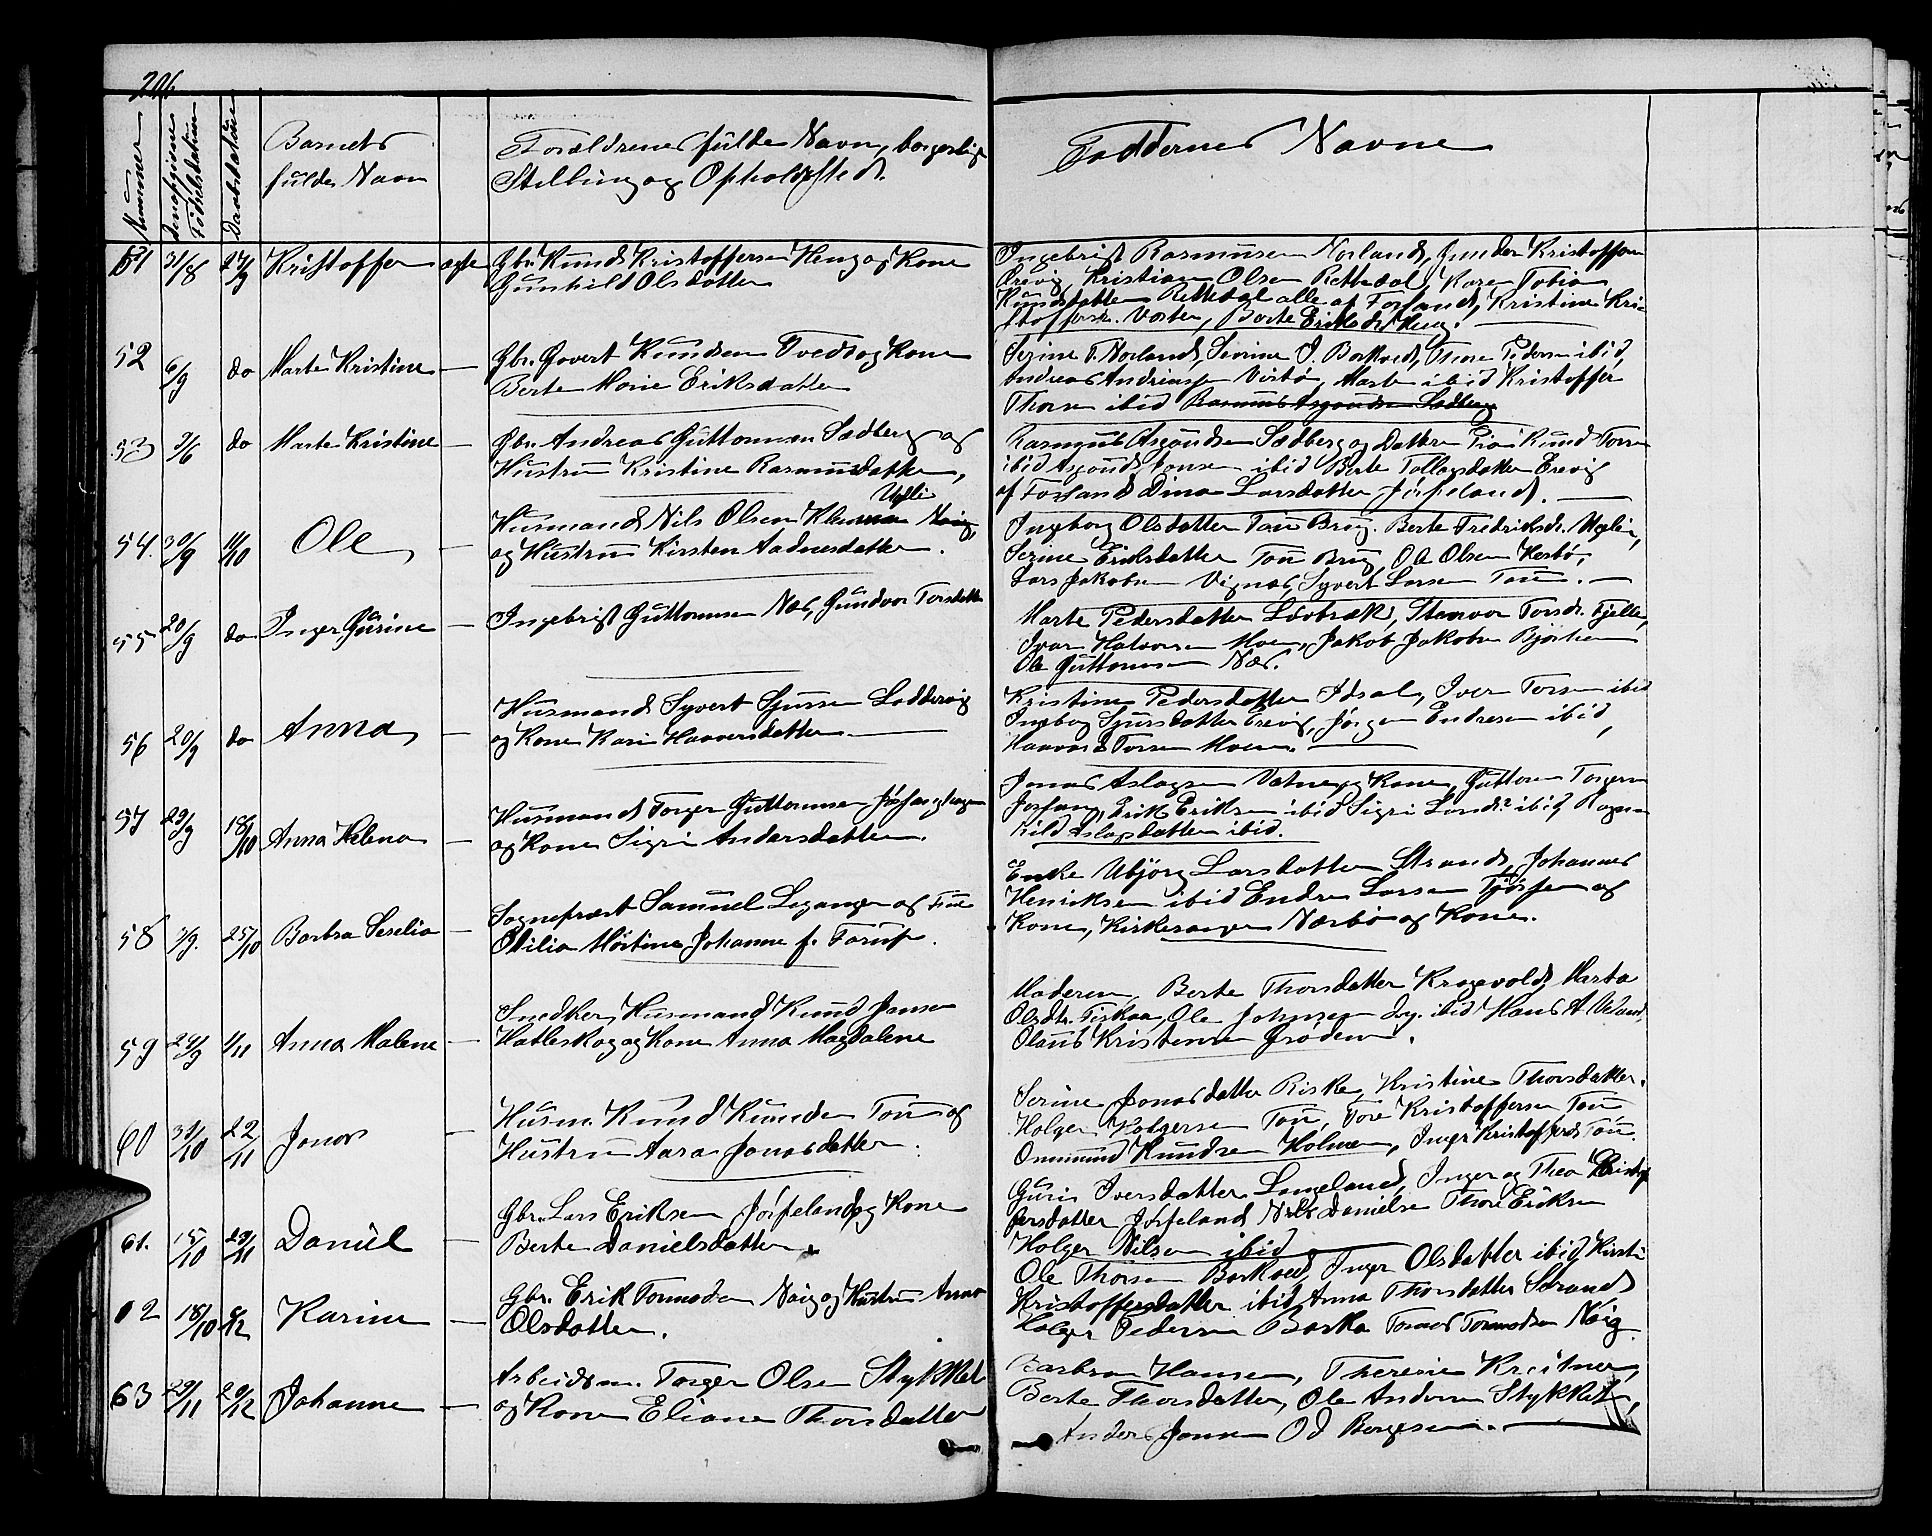 206
Nummer
Fødselsdatum
Daabsdatum
Barnets
fulde Navn
Forældrenes fulde Navn, borgerlige
Stilling og Opholdssted.
Faddernes Navne
51 31/8 27/9 Kristoffer ægte Gbr. Knud Kristoffersen Heng og Kone
Gunhild Olsdatter
Ingebrigt Rasmussen Norland, Gunder Kristoffersen
Erevig, Kristian Olsen Rettedal, Karen Tobia
Knudsdatter Rettedal alle af Forsand, Kristine Kri-
stoffersd. Barte Eriksd. Heng.
52 6/9 do Marte Kristine — Gbr. Govert Knudsen Tveds og Kone
Berte Marie Eriksdatter
Serine T. Norland, Severine J. Barkved, Thore Pedersen ibid,
Andreas Andreassen Vostbø, Marte ibid Kristoffer
Thorsen ibid Rasmus Asgaudsen Sedberg
53 3/6 do Marte Kristine — Gbr. Andreas Guttormsen Sedberg og
Hustru Kristine Rasmusdatter,
Rasmus Asgaudsen Sedberg og Datter Pia Knud Torsen
ibid Asgaud Jonsen ibid Berte Tollagsdatter Erevig
af Forsand Dina Larsdatter Jørpeland.
54. 30/9 11/10 Ole — Husmand Nils Olsen Ugli
og Hustru Kirsten Aadnesdatter.
Ingeborg Olsdatter Tau Brug. Berte Fredriksd. Uglin,
Serine Eriksdatter Tau Brug, Ole Olsen Herbø,
Lars Jakobsen Vignes, Syvert Larsen Tau.
55 20/9 do Inger Gurine — Ingebrigt Guttormsen Næs, Gundvor Torsdatter
Marte Pedersdatter Løvbræk, Steinvor Torsd. Fjelle,
Ivar Halvorsen Moen, Jakob Jakobsen Bjørheim
Ole Guttormsen Næs.
56 20/9 do Anna — Husmand Syvert Sjursen Loddervig
og Kone Kari Haavarsdatter
Kristine Pedersdatter Idsal, Iver Torsen ibid
Ingeborg Sjursdatter Erevig, Jørgen Endresen ibid,
Haavard Torsen Moen.
57 29/9 18/10 Anna Helena — Husmand Torger Guttormsen Jøssanghagen
og Kone Sigri Andersdatter.
Jonas Aslagsen Vatne og Kone, Guttorm Torgersen
Jøssang, Erik Eriksen ibid Sigri Lensd. ibid, Ragn-
hild Aslagsdatter ibid.
58 3/9. 25/10 Barbra Seselia — Sogneprest Samuel Leganger og Frue
Otilia Martine Johanne f. Tarup.
Enke Abjørg Larsdatter Strand, Johannes
Henriksen ibid Endre Larsen Tjøssem og
Kone, Kirkesanger Nærbø og Kone.
59 24/9 1/11 Anna Malene — Snedker, Husmand Knud Jansen
Hatleskog og Kone Anna Magdalene
Moderen, Berte Thorsdatter Kragevold, Marta
Olsdtr. Fiskaa, Ole Johnsen ibid Hans A. Meland,
Olaus Kristensen Grøden.
60 31/10 22/11 Jonas — Husm. Knud Knudsen Tau og
Hustru Aasa Jonasdatter
Serine Jonasdatter Riske, Kristine Thorsdatter.
Holger Holgersen Tau, Tore Kristoffersen Tau
Ommund Knudsen Holmen, Inger Kristoffersd. Tau.
61. 15/10 29/11 Daniel — Gbr. Lars Eriksen Jørpeland og Kone
Berte Danielsdatter
Guri Iversdatter Langeland, Inger og Thea Kristof-
fersdatter Jørpeland Nils Danielsen Thore Eriksen
Holger Nilsen ibid
62 18/10 6/12 Karine — Gbr. Erik Tormodsen Nøig og Hustru Anna
Olsdatter.
Ole Thorsen Barkved, Inger Olsdatter ibid, Kirsti
Kristoffersdatter ibid Anna Thorsdatter Strand
Holger Pedersen Barka Tormod Tormodsen Nøig
63 29/11 20/12 Johanne — Arbeidsm. Torger Olsen Stykket
og Kone Eliane Thorsdatter
Barbra Hansen, Theresie Kreitner,
Berte Thorsdatter, Ole Andersen Stykket,
Anders Jonsen Od Børgesen.